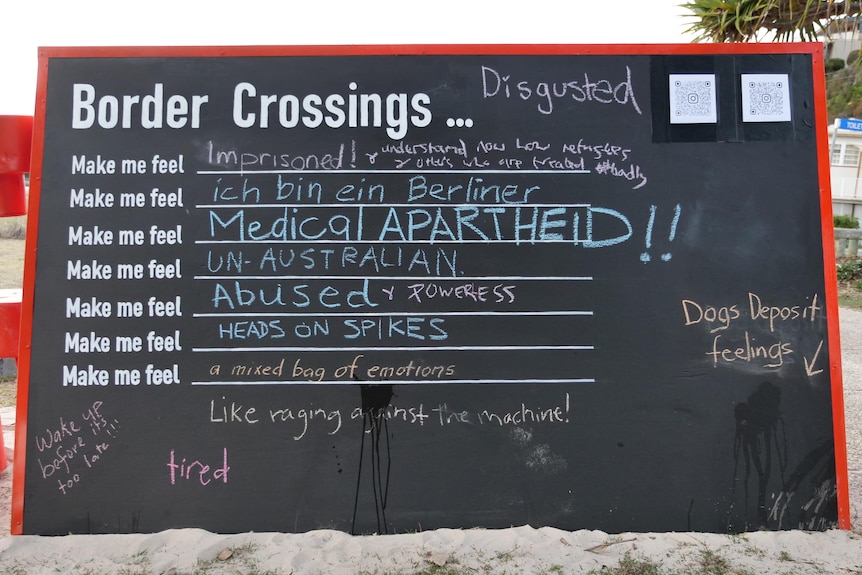 Border Crossings ...
Disgusted
Make me feel Imprisoned! & understand now how refugees
& others who are treated badly
Make me feel ich bin ein Berliner
Make me feel Medical APARTHEID!!
Make me feel UN-AUSTRALIAN.
Make me feel Abused & POWERESS
Make me feel HEADS ON SPIKES
Make me feel a mixed bag of emotions
Like raging against the machine!
Dogs Deposit
feelings
Wake up
before its
too late!!!
tired
TOILET